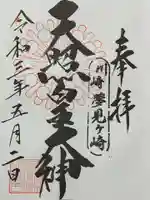 奉拝
川崎夢見ヶ崎
天照皇大神
令和三年五月二日